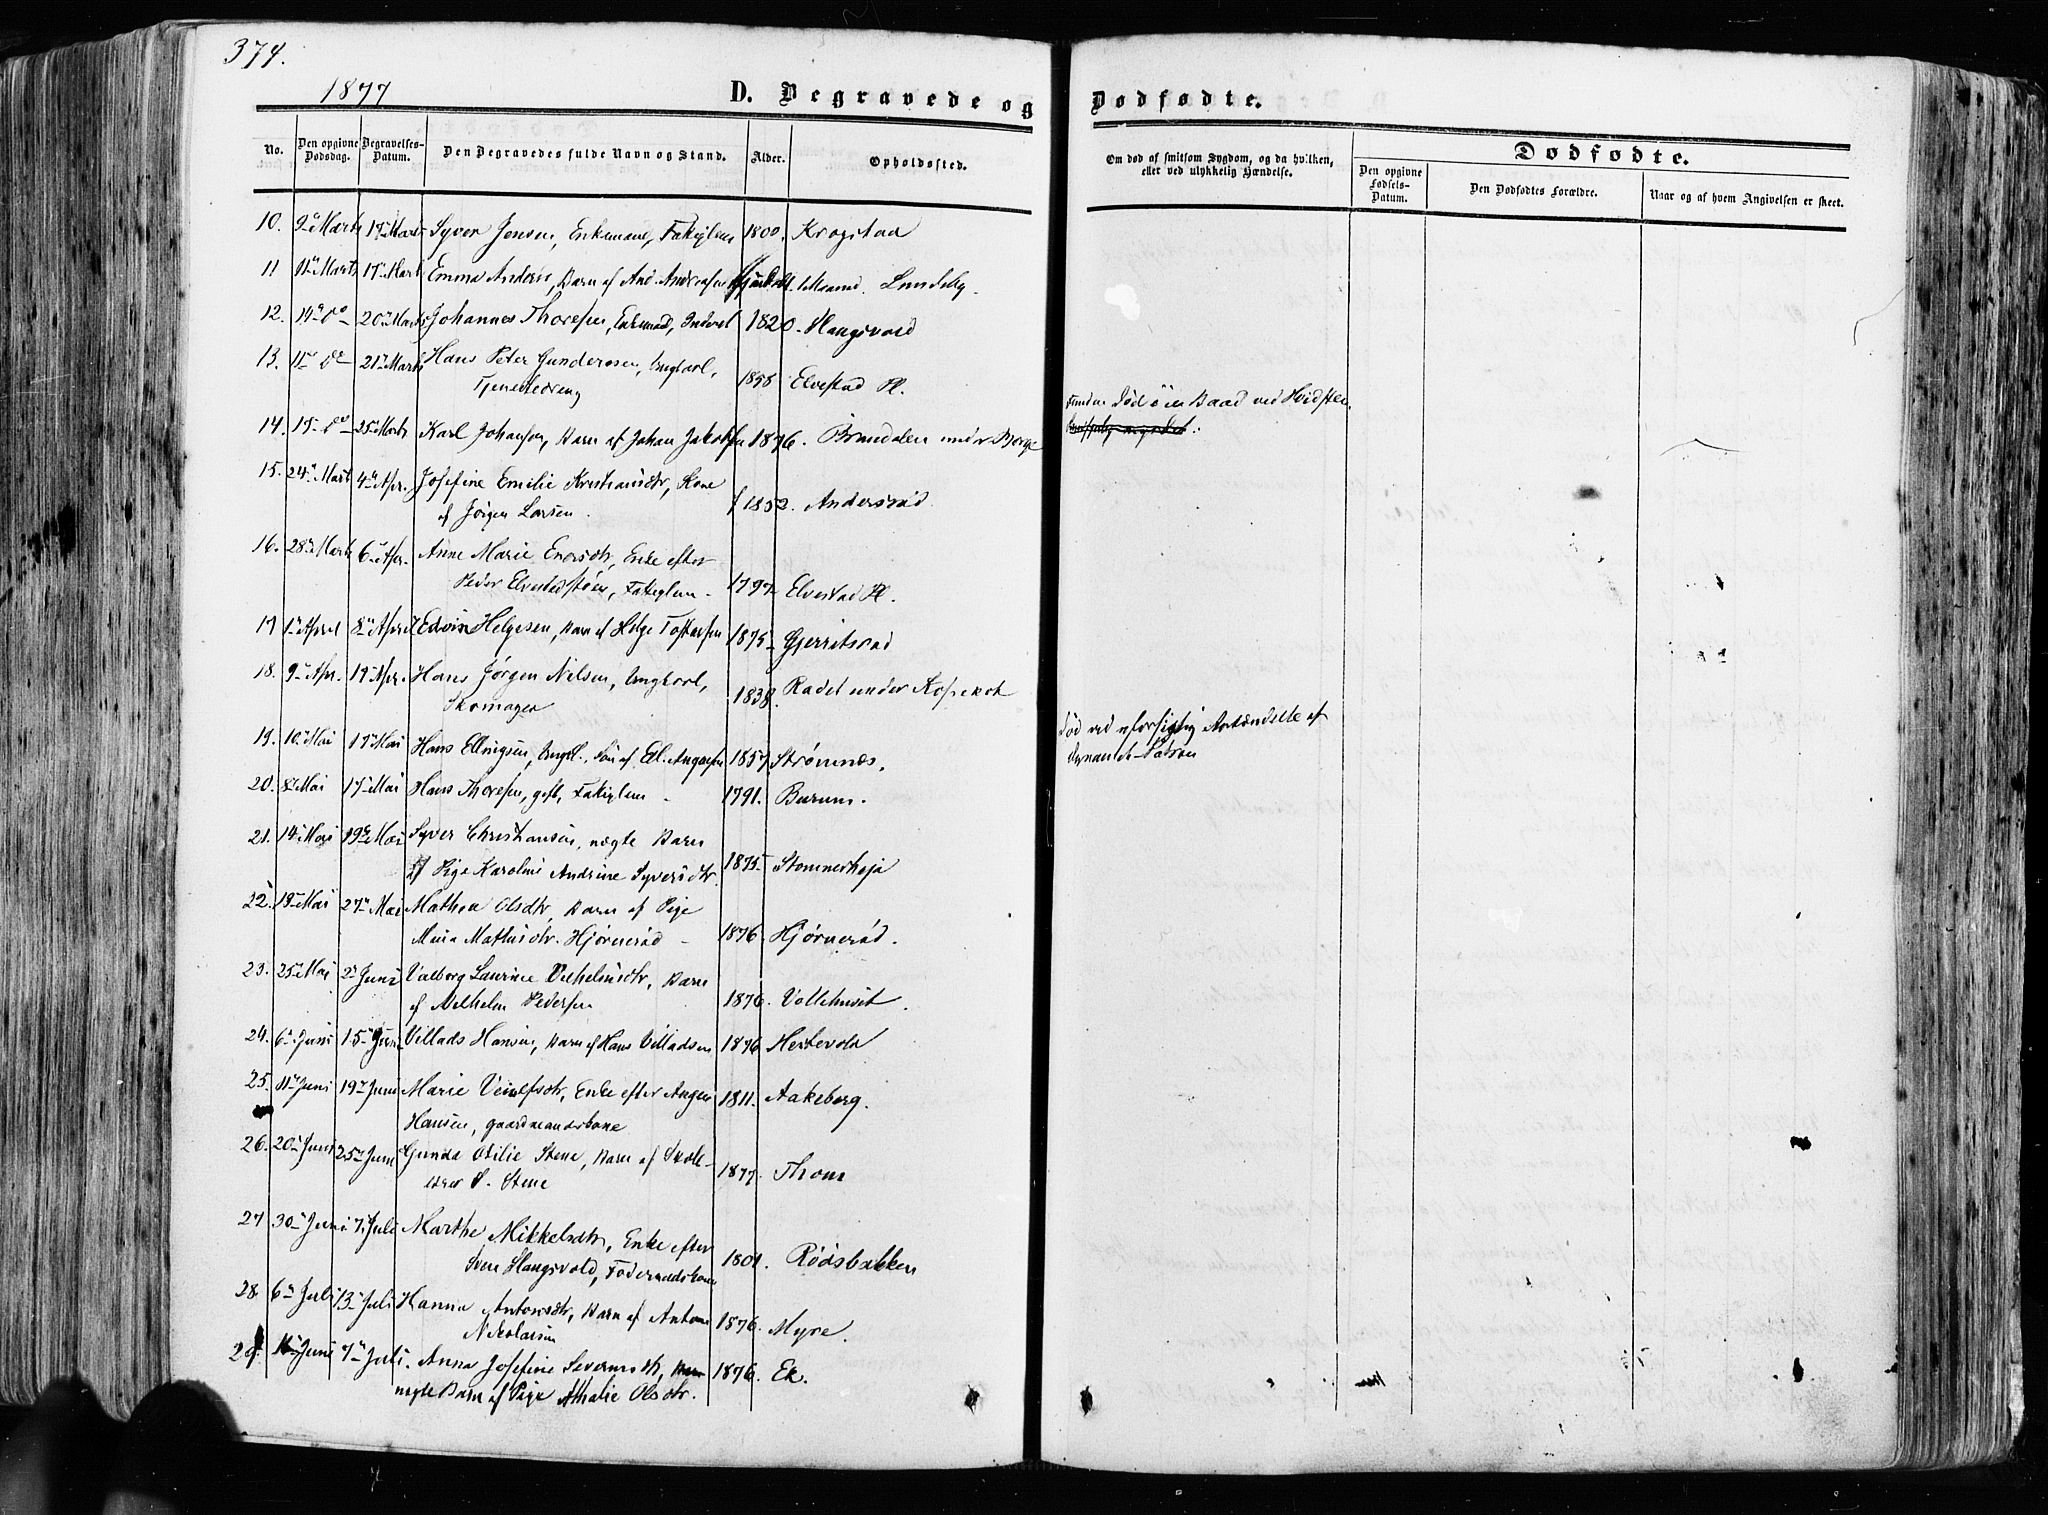 374.
1877
D. Begravede og Dødfødte.
No. Den opgivne Dødsdag. Begravelses-Datum. Den Begravedes fulde Navn og Stand. Alder. Opholdssted.
Om død af smitsom Sygdom, og da hvilken, eller ved ulykkelig Hændelse.
Dødfødte.
Den opgivne Fødsels-Datum. Den Dødfødtes Forældre. Naar og af hvem Angivelsen er skeet.
10. 9de Marts 17de Marts Syver Jensen, Enkemand, Fattiglem 1800. Krogstad
11 11te Marts 17de Marts Emma Anders, Barn af And. Andersen Maaned. Lundeby
12. 14de Do 20de Marts Johannes Thoresen, Enkemand, Inderst 1820 Haugsvold
13. 11te Do 21de Marts Hans Peter Gundersen, Ungkarl,
Tjenestedreng 1858 Elvestad Pl.
Funden død i en Baad ved Hvidsten.
14. 15 Do 25de Marts Karl Johansen, Barn af Johan Jakobsen 1876. Brundalen under Borge
15. 24de Marts 4de Apr. Josefine Emilie Kristiansdtr, Kone
af Jörgen Larsen. f 1852. Andersrød
16. 28de Marts 6te Apr. Anne Marie Enersdtr, Enke efter
Peder Elvestadstøen, Fattiglem 1797 Elvestad Pl.
17 1ste April 8de April Edvin Helgesen, Barn af Helge Tostensen 1875 Gjerritsrød
18. 9de Apr. 17de Apr. Hans Jørgen Nilsen, Ungkarl,
Skomager 1838. Rødet under Kopserød
19. 10de Mai 17de Mai Hans Ellingsen, Ungk., Søn af Ell. Aagesen 1857 Strømnæs.
Død ved uforsigtig Antændelse af
Dynamit-Patron
20. 8de Mai 17de Mai Hans Thoresen, gift, Fattiglem 1791. Burum.
21. 14de Mai 19de Mai Syver Christiansen, uægte Barn
af Pige Karoline Andrine Syversdtr. 1875 Stomnerhøja
22. 18de Mai 27de Mai Mathea Olsdtr, Barn af Pige
Maria Mathisdtr. Hjørnerød 1876. Hjørnerød.
23. 25de Mai 2de Juni Valborg Laurine Vilhelmsdtr, Barn
af Vilhelm Pedersen 1876. Vollehuset.
24. 6te Juni 15de Juni Villads Hansen, Barn af Hans Villadsen 1876 Hestevold
25. 11te Juni 19de Juni Marie Veiulfsdtr, Enke efter Aagen
Hansen, gaardmandskone 1811. Aakeberg.
26. 20de Juni 25de Juni Gunda Otilie Stene, Barn af Skole-
lærer P. Stene 1877. Thom
27 30te Juni 7de Juli Marthe Mikkelsdtr, Enke efter
Sven Haugsvold, Føderaadskone 1801. Rødsbakken
28. 6te Juli 13de Juli Hanna Antonsdtr, Barn af Anton
Nikolaisen 1876. Myre.
29. 1ste Juni 7de Juli. Anna Josefine Severinsdtr,
uægte Barn af Pige Athalie Olsdtr. 1876. Ek.